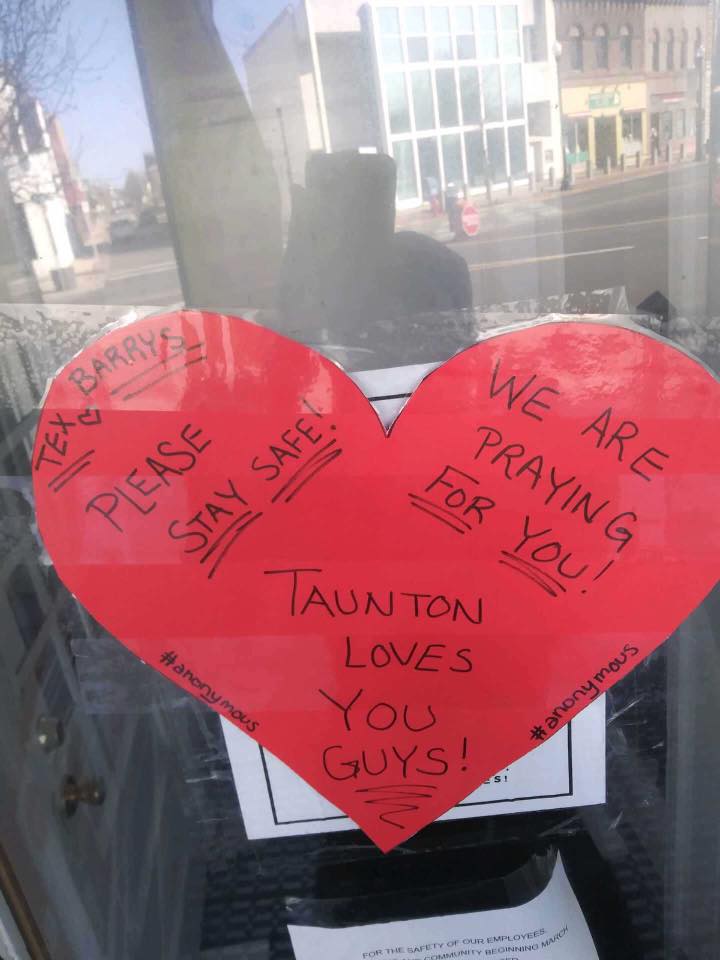 TEX
BARRYS
PLEASE
STAY SAFE!
WE ARE
PRAYING
FOR YOU!
TAUNTON
LOVES
YOU
GUYS!
#anonymous
#anonymous
S!
FOR THE SAFETY OF OUR EMPLOYEES,
COMMUNITY BEGINNING MARCH